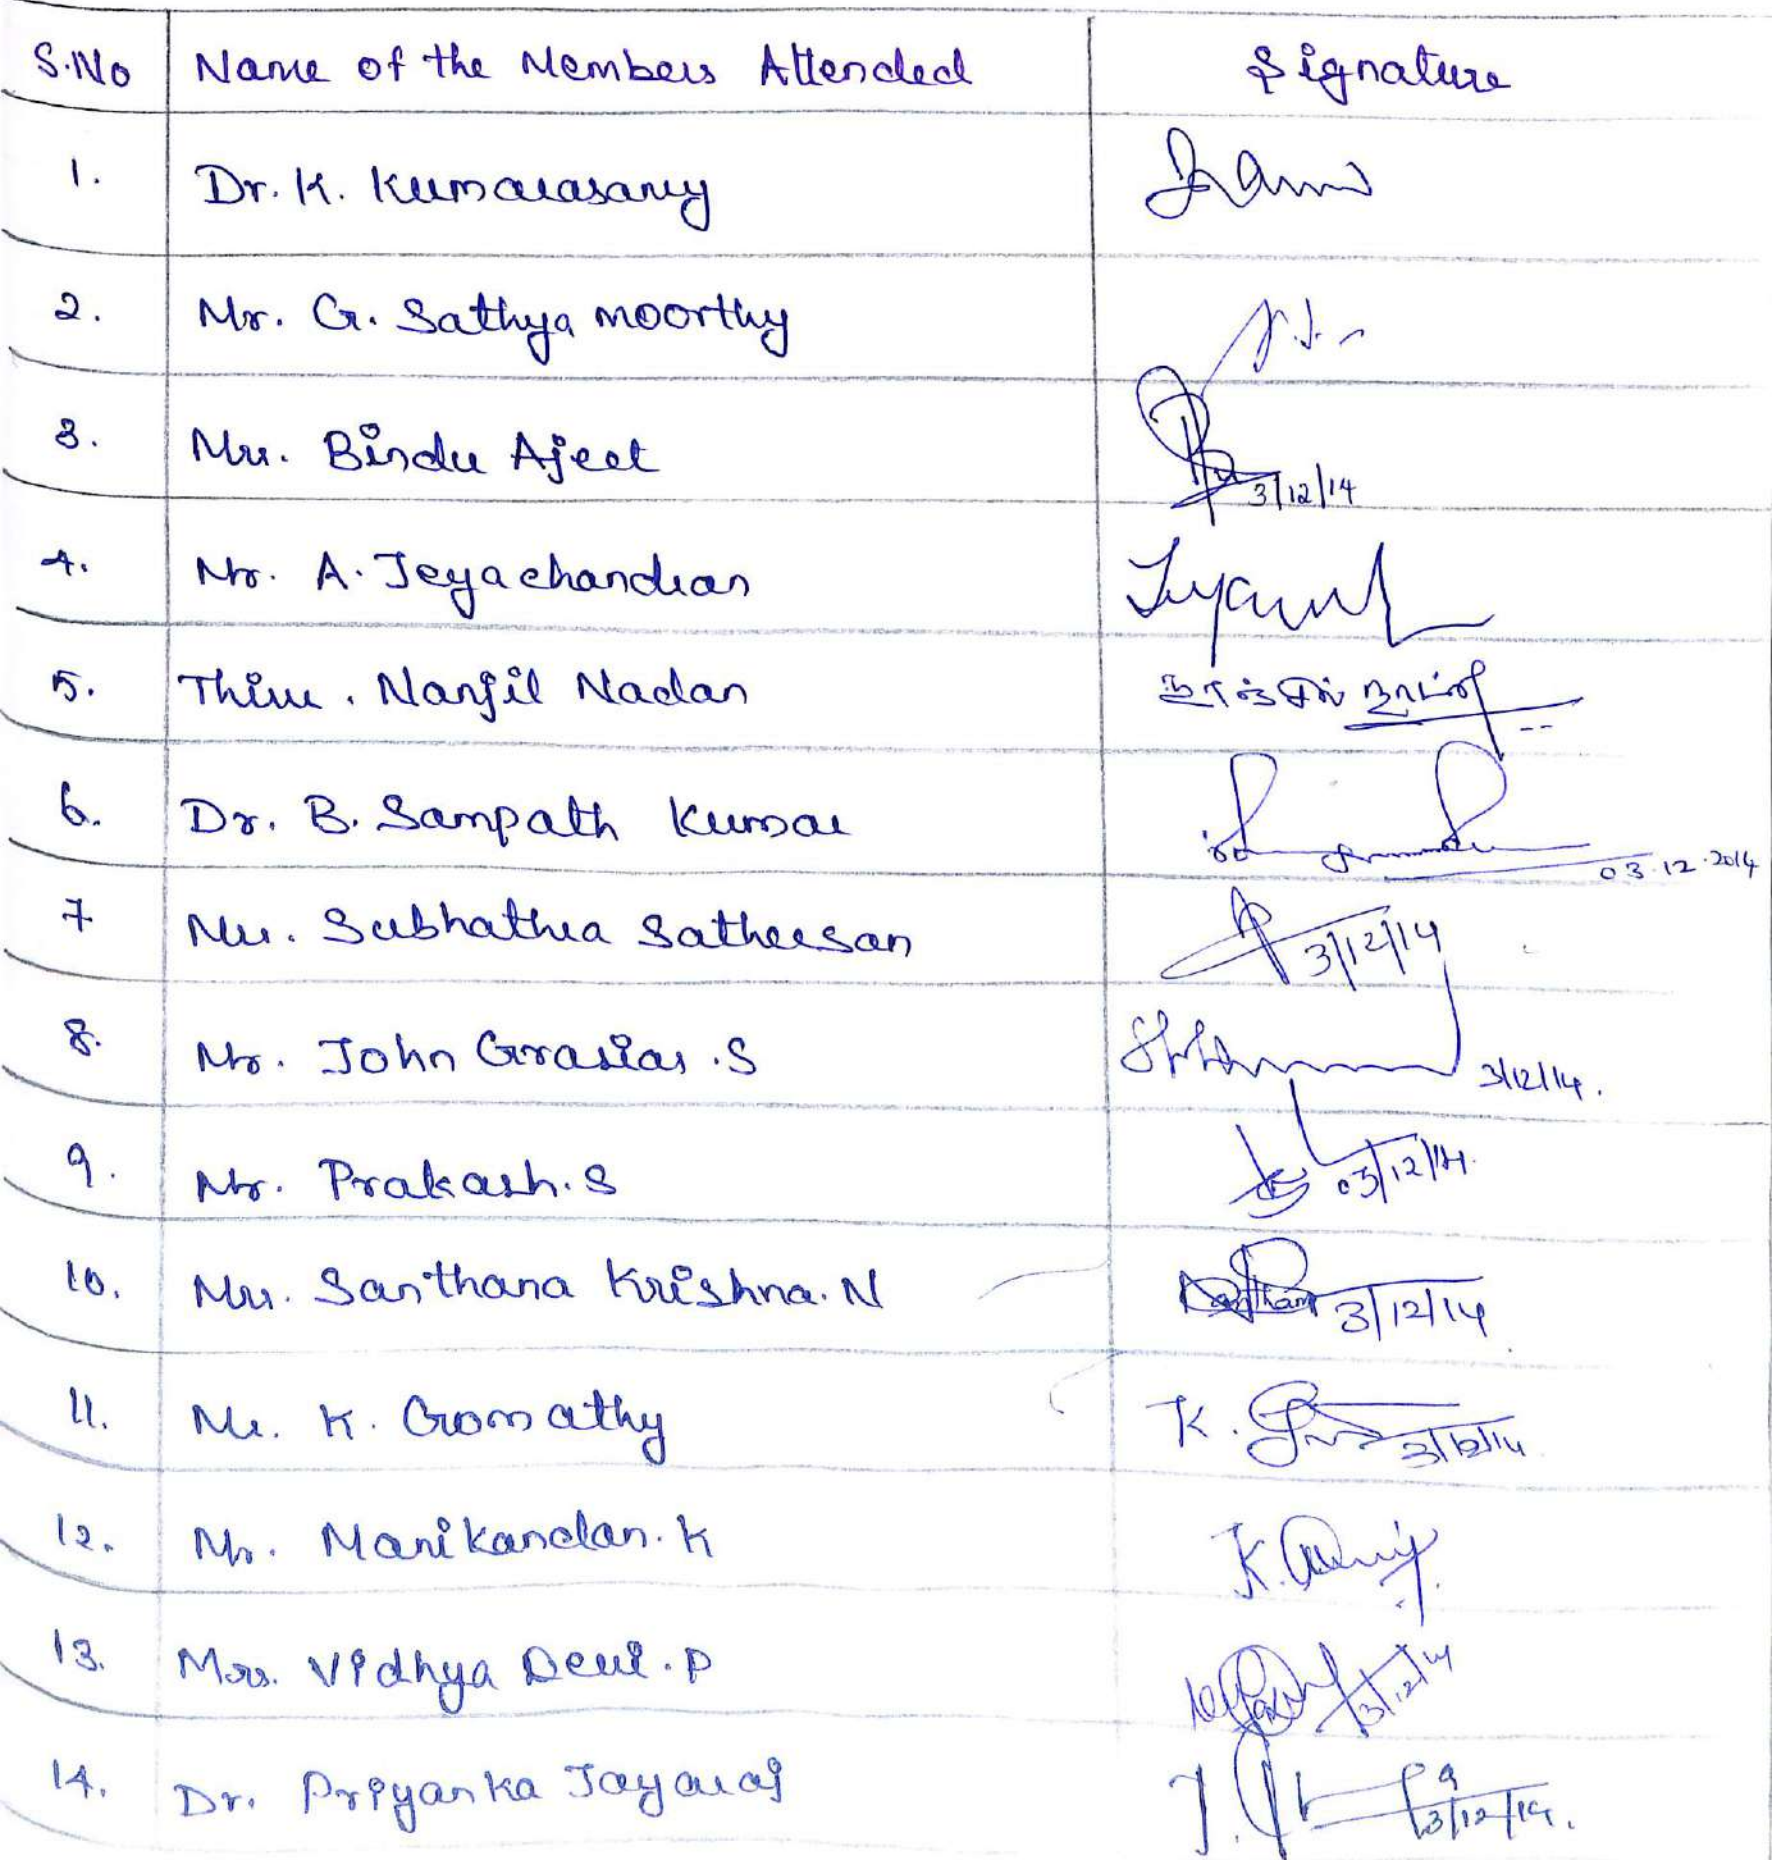 S.No Name of the Members Attended Signature
1. Dr. K. Kumarasamy
2. Mr. G. Sathya moorthy
3. Mrs. Bindu Ajeet 3/12/14
4. Mr. A. Jeyachandran
5. Thiru. Nanjil Nadan நாஞ்சில் நாடன்
6. Dr. B. Sampath Kumar 03.12.2014
7 Mrs. Subhathra Satheesan 3/12/14
8. Mr. John Grasias .S 3/12/14.
9. Mr. Prakash. S 03/12/14.
10. Mrs. Santhana Krishna. N 3/12/14
11. Ms. K. Gomathy K. 3/12/14
12. Mr. Manikandan. K K.
13. Mrs. Vidhya Devi. P 3/12/14
14. Dr. Priyanka Jayaraj J. 3/12/14.